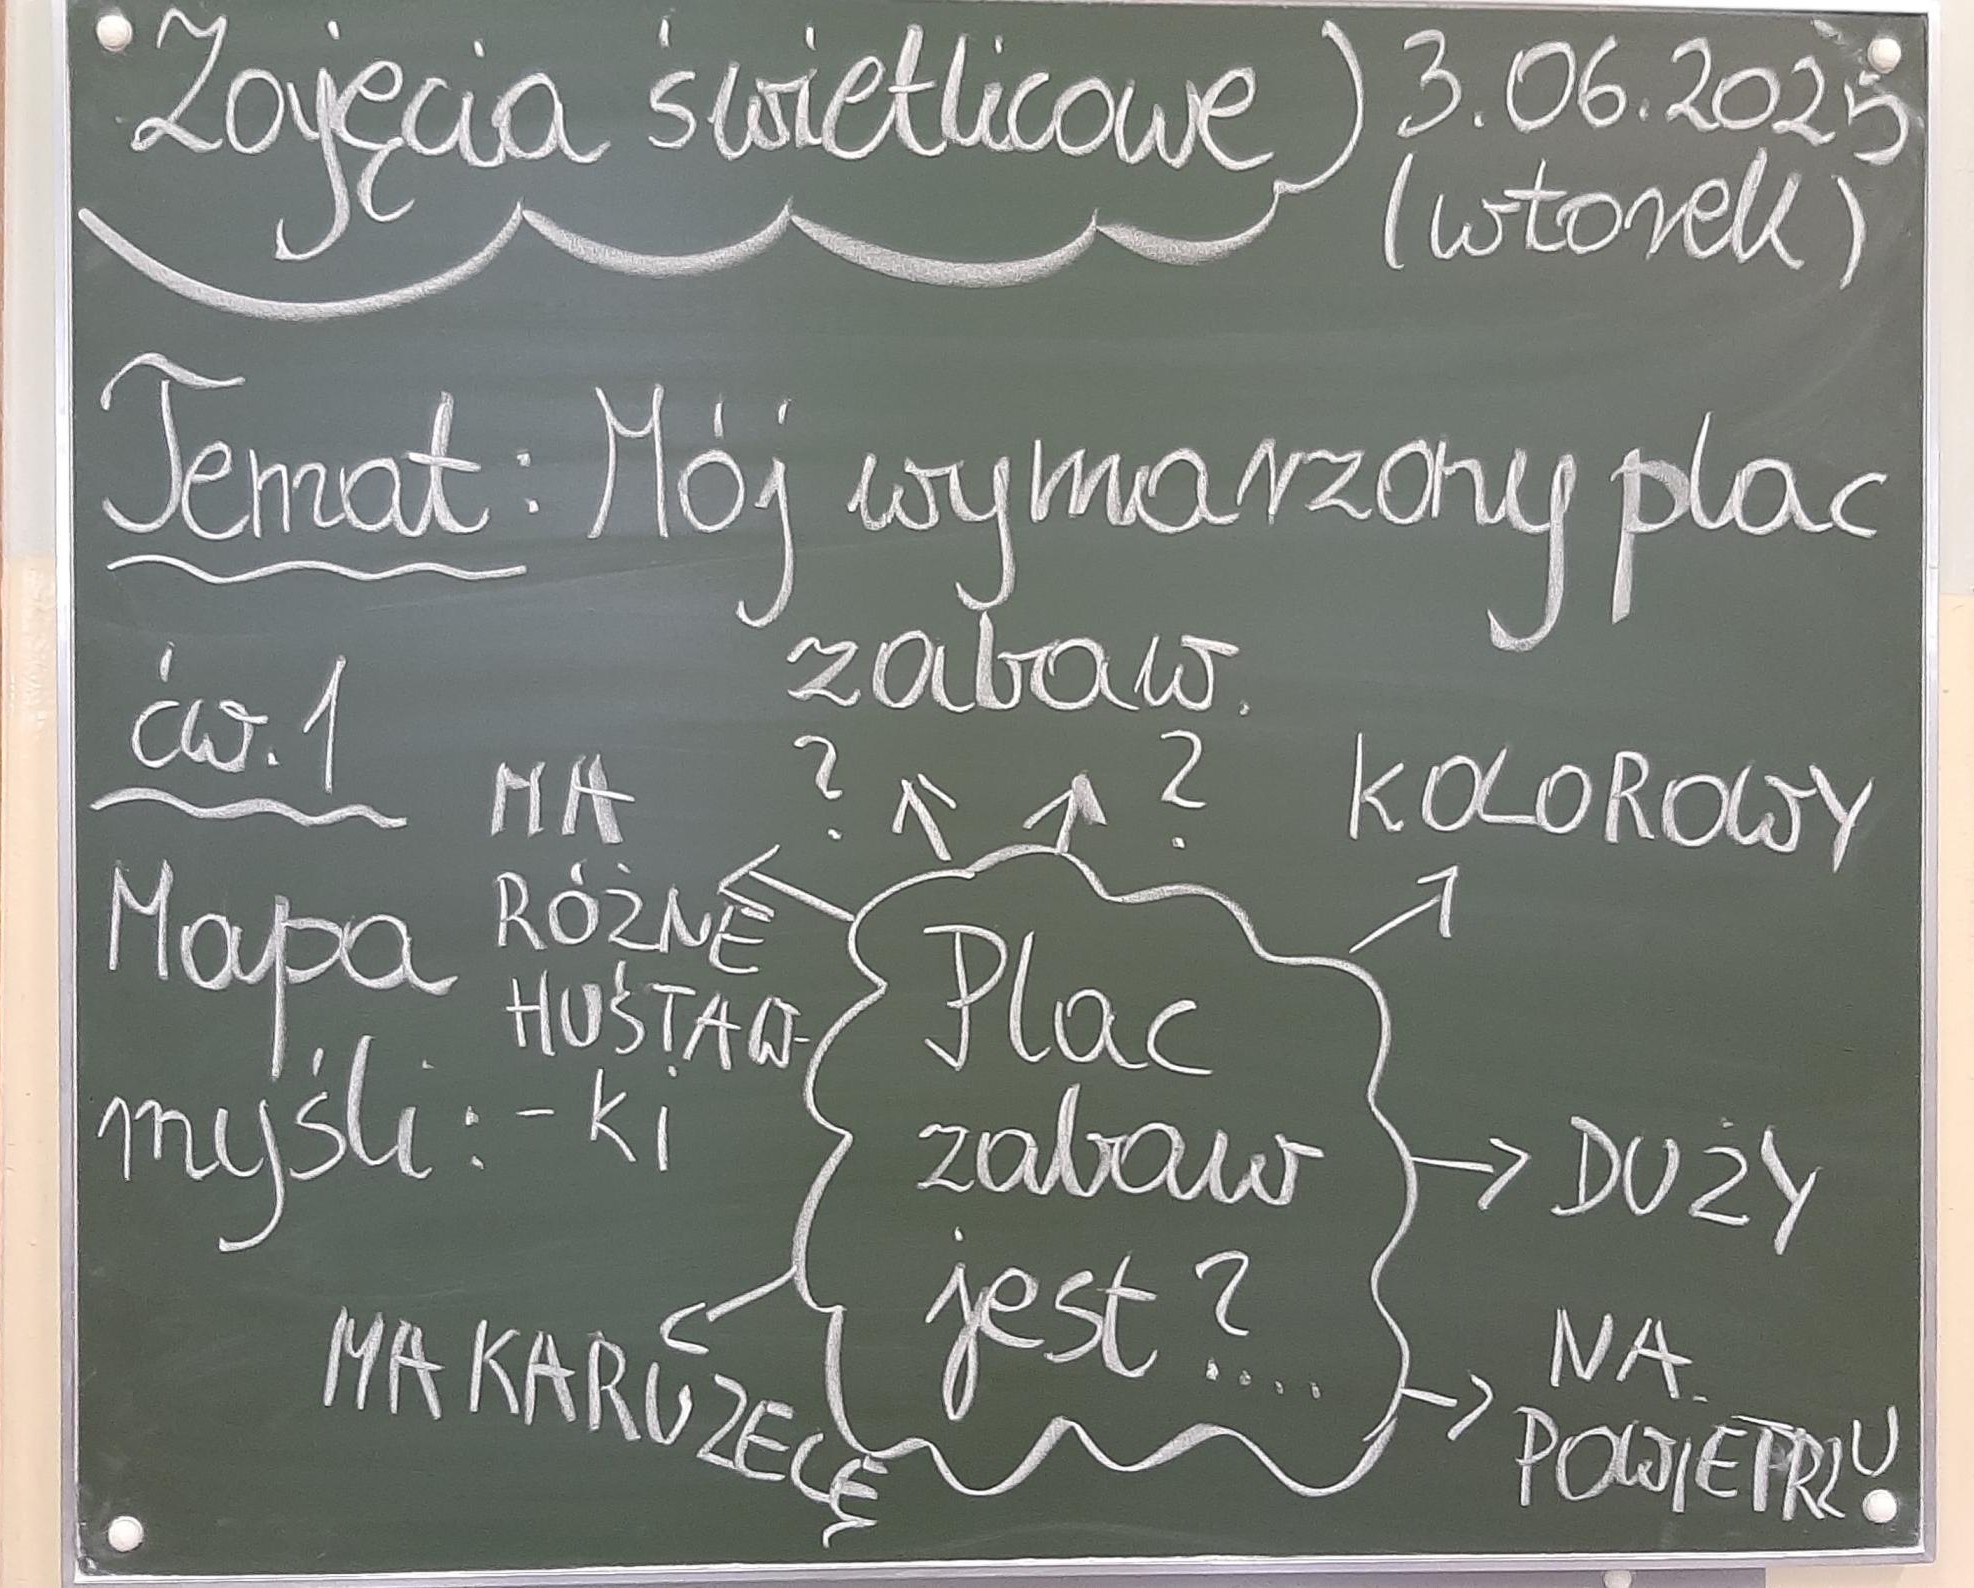 Zajęcia świetlicowe
3.06.2025
(wtorek)
Temat: Mój wymarzony plac
zabaw.
ćw. 1
Mapa
myśli:
MA
RÓŻNE
HUŚTAW-
-KI
?
?
KOLOROWY
Plac
zabaw
jest?....
DUŻY
NA
POWIETRZU
MA KARUZELĘ